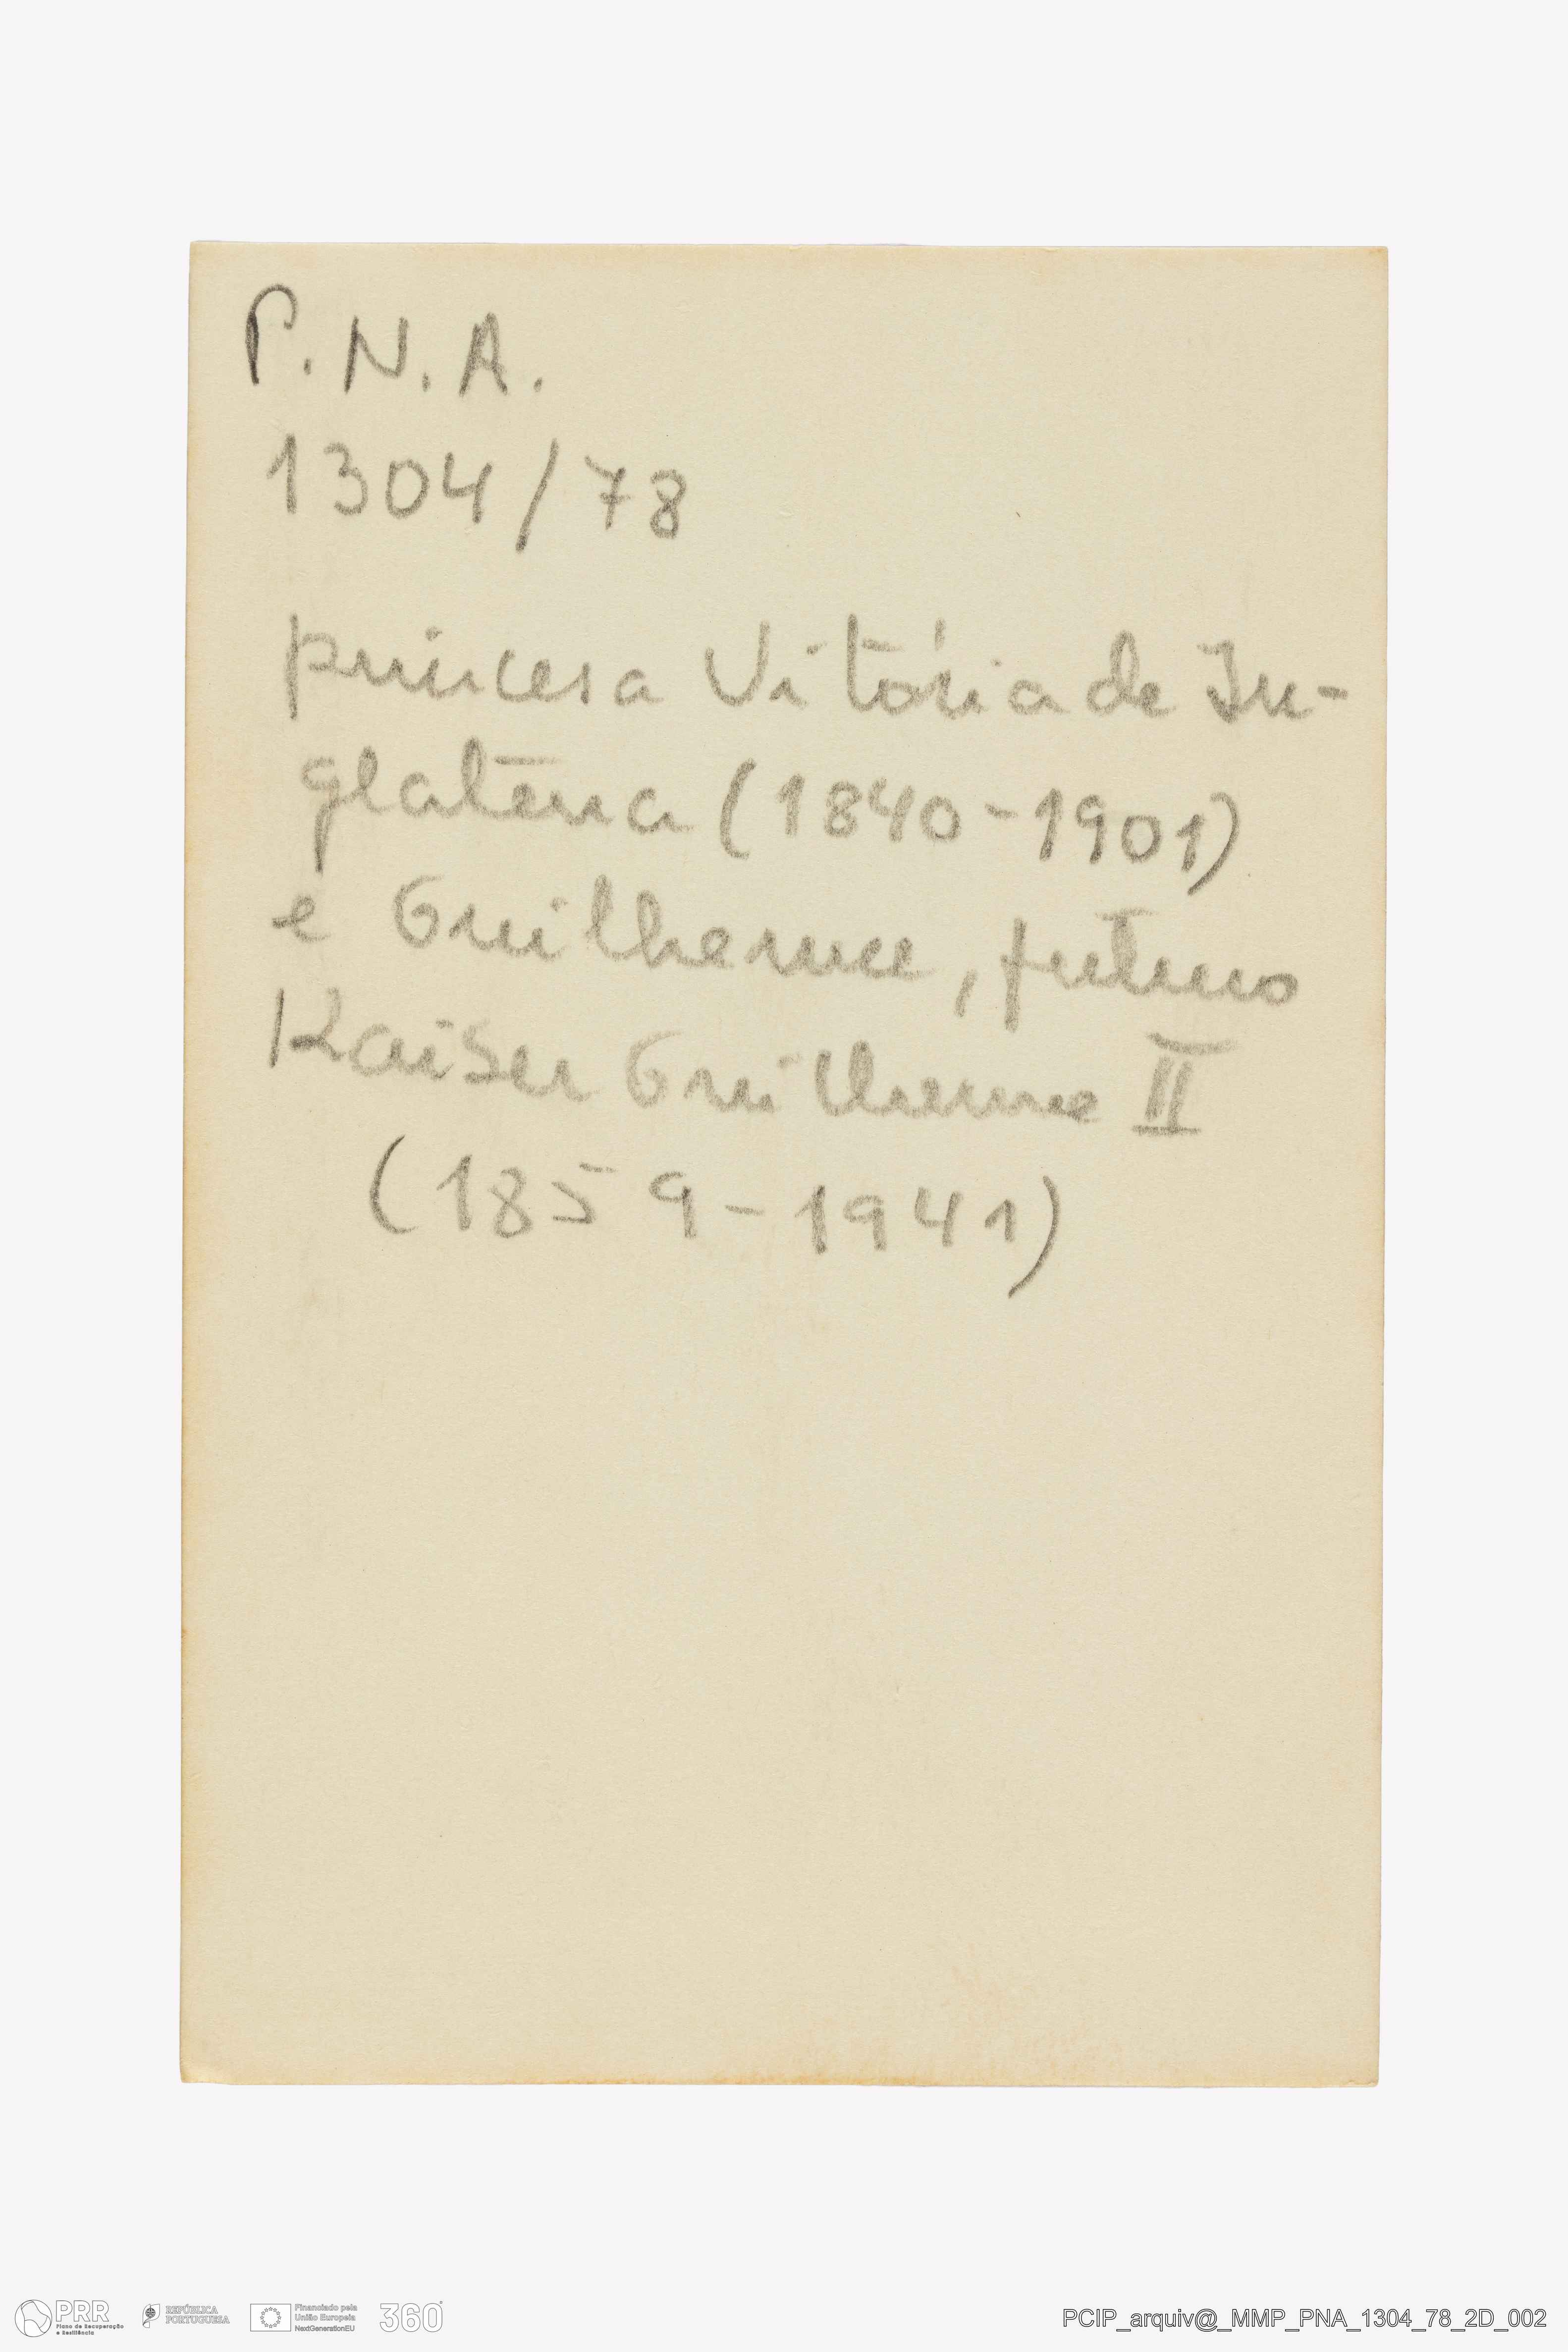 P.N.A.
1304/78
princesa Vitória de In-
glaterra (1840-1901)
e Guilherme, futuro
Kaiser Guilherme II
(1859-1941)
PRR
Plano de Recuperação
e Resiliência
REPÚBLICA
PORTUGUESA
Financiado pela
União Europeia
NextGenerationEU
360°
PCIP_arquiv@_MMP_PNA_1304_78_2D_002